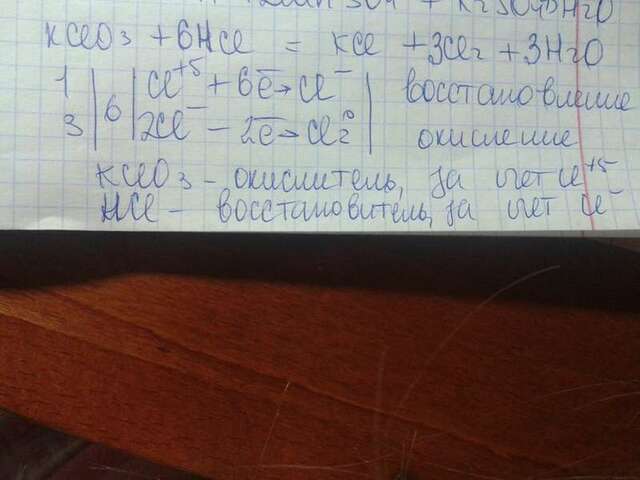 KClO3 + 6HCl = KCl + 3Cl2 + 3H2O
1 | 6 | Cl+5 + 6e → Cl- | восстановление
3 | 2Cl- - 2e → Cl2 0 | окисление
KClO3 - окислитель, за счет Cl+5
HCl - восстановитель, за счет Cl-